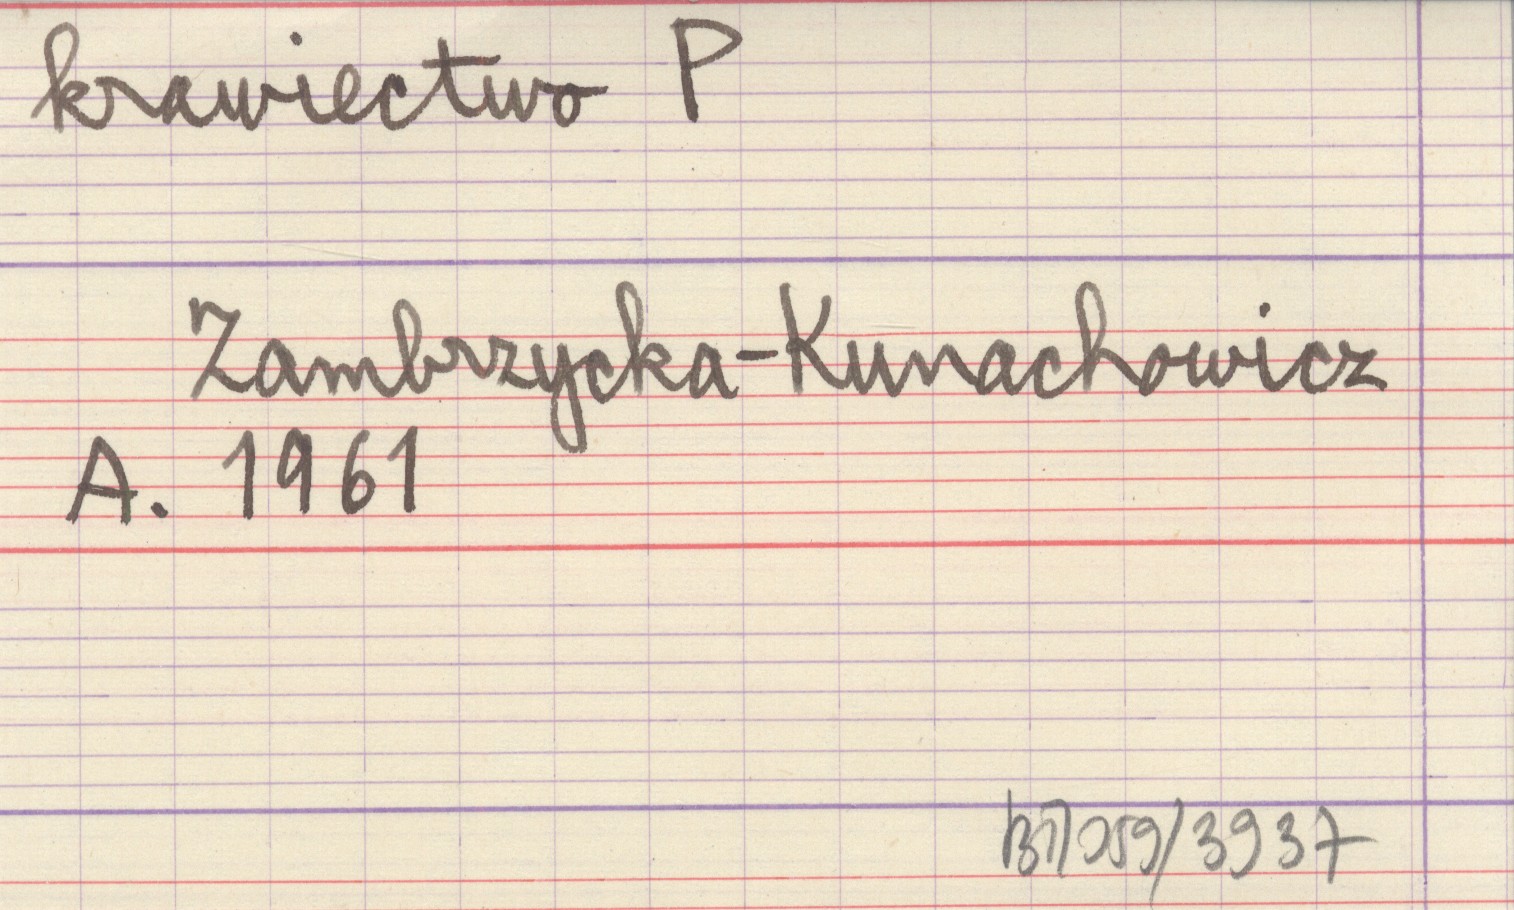 krawiectwo P
Zambrzycka-Kunachowicz
A. 1961
/3937